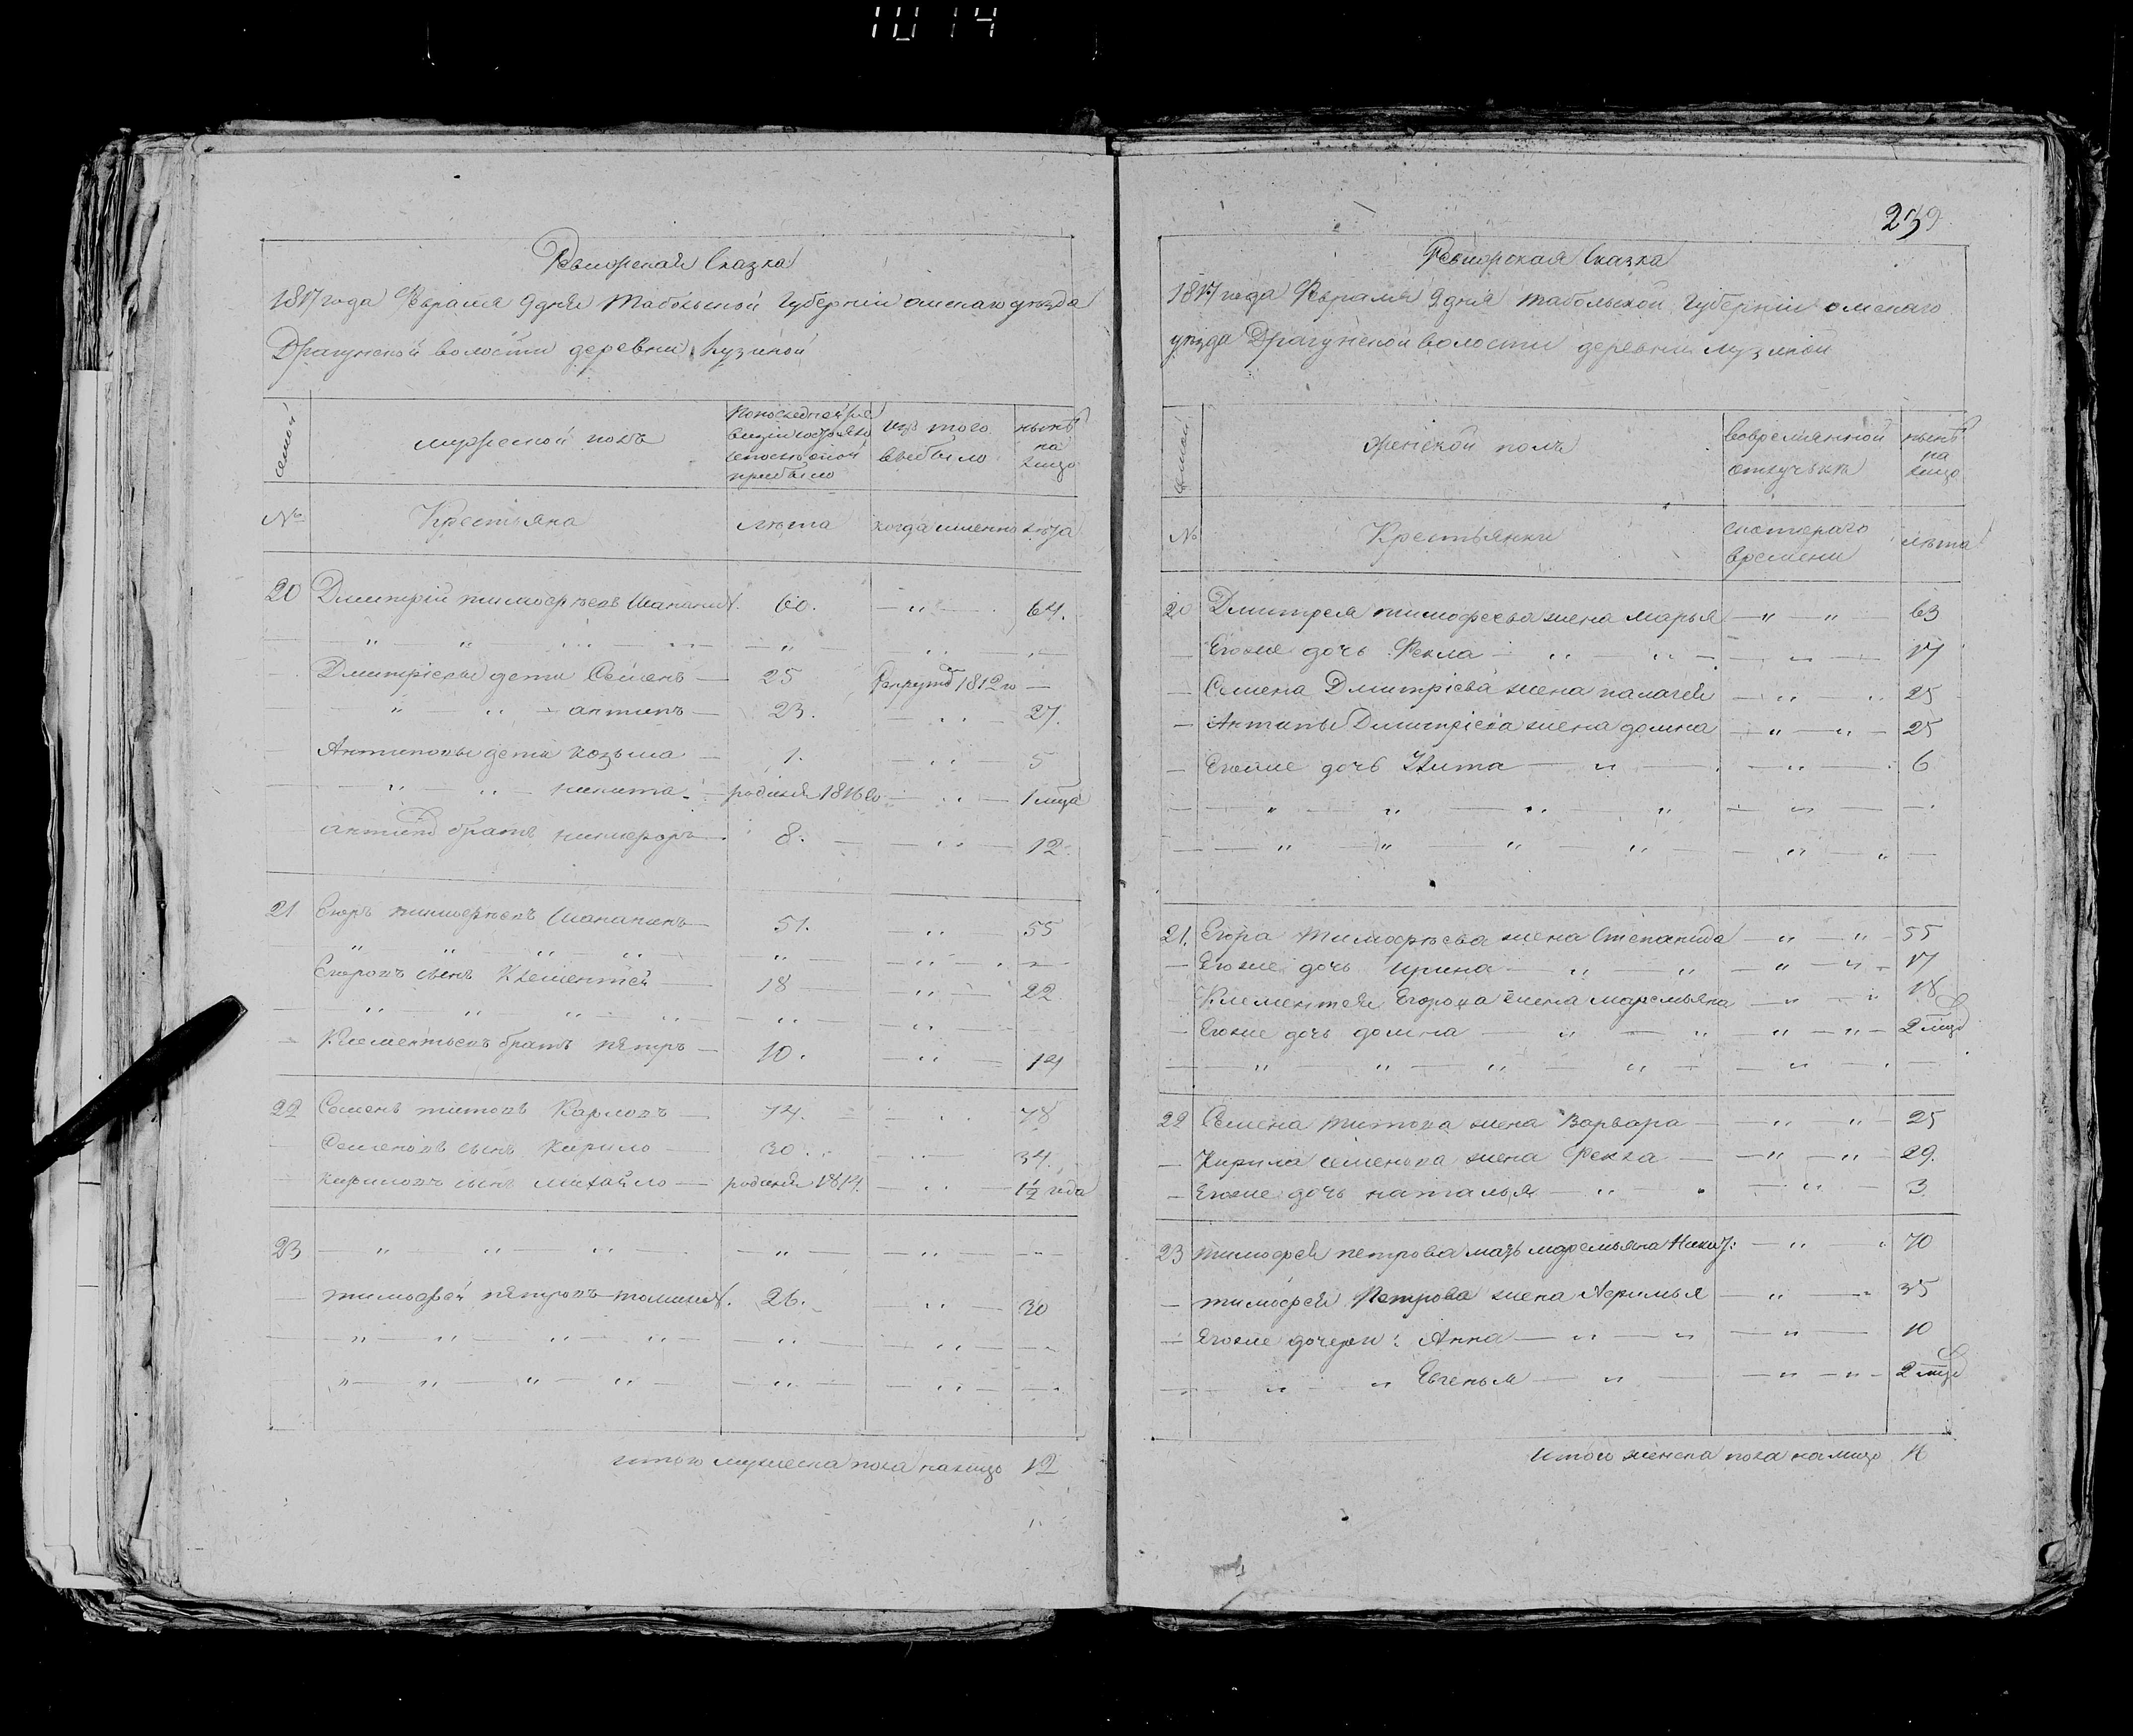 1014
Ревизская Сказка
1817 года Февраля 9 дня Табольской Губернии омскаго уезда
Драгунской волости деревни Лузиной
семей
мужеской полъ
по последней ре
визии состояло
и после оной
прибыло
изъ того
выбыло
ныне
на
лицо
№
Крестьяна
лета
когда именно
лета
20 Дмитрий тимофеевъ Шапкин 60. 64.
Дмитриевы дети Семенъ 25 Рекрутъ 1812 го
антипъ 23. 27.
Антиповы дети козьма 1. 5
никита родился 1816 го 1 меца
антипа братъ никифоръ 8. 12.
21 Егоръ тимофеевъ Шапкинъ 51. 55
Егоровъ сынъ Клементей 18 22
Клементьевъ братъ пётръ 10. 14
22 Семенъ титовъ Карповъ 74. 78
Семеновъ сынъ Кирило 30. 34.
Кириловъ сынъ михайло родился 1814. 1½ года
23
тимофей петровъ 26. 30
итого мужеска пола налицо 12
239
Ревизская Сказка
1817 года Февраля 9 дня табольской Губернии омскаго
уезда Драгунской волости деревни лузиной
семей
женской полъ
вовременной
отлучьке
ныне
на
лицо
№
Крестьянки
скотораго
времени
лета
20 Дмитрея тимофеева жена марья 63
Егоже дочь Фекла 17
Семена Дмитриева жена палагея 25
Антипы Дмитриева жена домна 25
Егоже дочь 6
21. Егора тимофеева жена Степанида 55
Егоже дочь ирина 17
Клементея Егорова жена маремьяна 18
Егоже дочь домна 2 мца
22 Семена титова жена Варвара 25
Кирила семенова жена Фекла 29.
Егоже дочь наталья 3
23 тимофея петрова мать маремьяна 70
тимофея Петрова жена 35
Егоже дочери: Анна 10
Евгенья 2 мца
Итого женска пола налицо 16